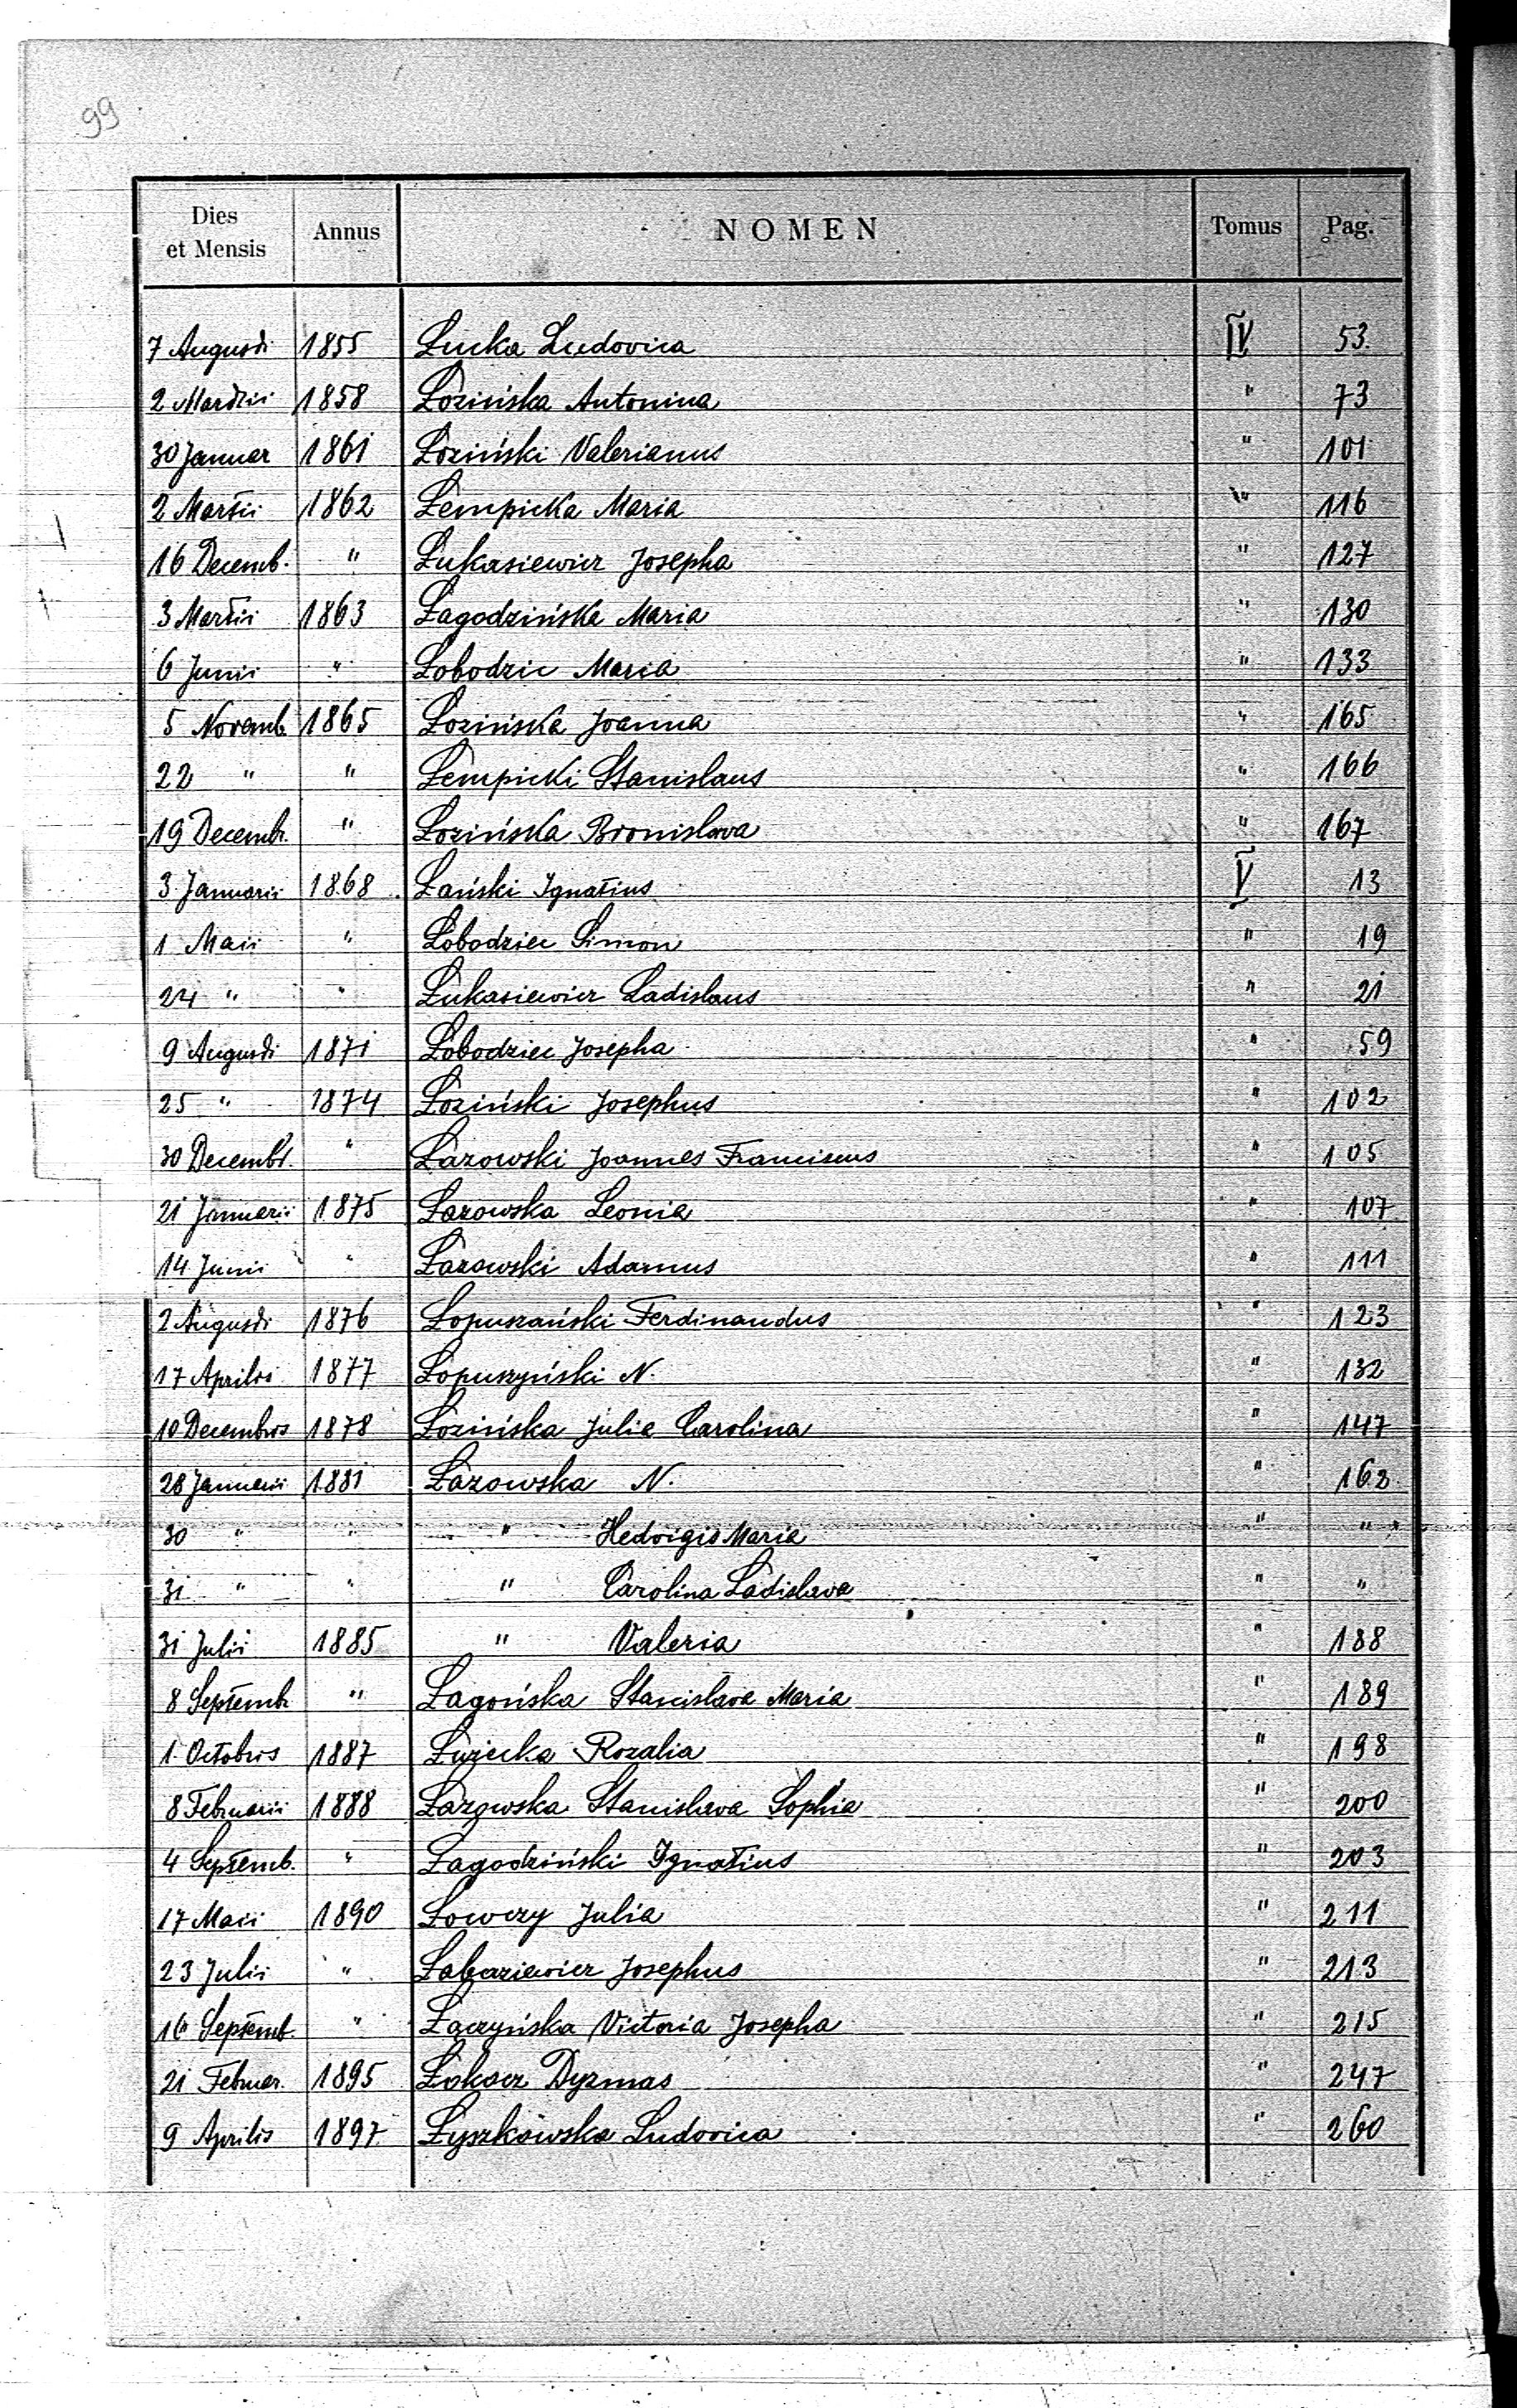 99
Dies et Mensis Annus NOMEN Tomus Pag.
7 Augusti 1855 Łucka Ludovica IV 53
2 Martii 1858 Łozińska Antonina " 73
30 Januar 1861 Łoziński Valerianus " 101
2 Martii 1862 Łempicka Maria " 116
16 Decemb. " Łukasiewicz Josepha " 127
3 Martii 1863 Łagodzińska Maria " 130
6 Junii " Łobodzic Maria " 133
5 Novemb. 1865 Łozińska Joanna " 165
22 " " Łempicki Stanislaus " 166
19 Decemb. " Łozińska Bronislava " 167
3 Januarii 1868 Łański Ignatius V 13
1 Maii " Łobodziec Simon " 19
24 " " Łukasiewicz Ladislaus " 21
9 Augusti 1871 Łobodziec Josepha " 59
25 " 1874 Łoziński Josephus " 102
30 Decembr. " Łazowski Joannes Franciscus " 105
21 Januarii 1875 Łazowska Leonia " 107
14 Junii " Łazowski Adamus " 111
2 Augusti 1876 Łopuszański Ferdinandus " 123
17 Aprilis 1877 Łopuszyński N. " 132
10 Decembris 1878 Łozińska Julia Carolina " 147
28 Januarii 1881 Łazowska N. " 162
30 " " " Hedvigis Maria " "
31 " " " Carolina Ladislava " "
31 Julii 1885 " Valeria " 188
8 Septemb. " Łagońska Stanislava Maria " 189
1 Octobris 1887 Łużecka Rozalia " 198
8 Februarii 1888 Łazowska Stanislava Sophia " 200
4 Septemb. " Łagodziński Ignatius " 203
17 Maii 1890 Łowczy Julia " 211
23 Julii " Josephus " 213
16 Septemb. " Łączyńska Victoria Josepha " 215
21 Februar. 1895 Łokacz Dyzmas " 247
9 Aprilis 1897 Łyszkowska Ludovica " 260